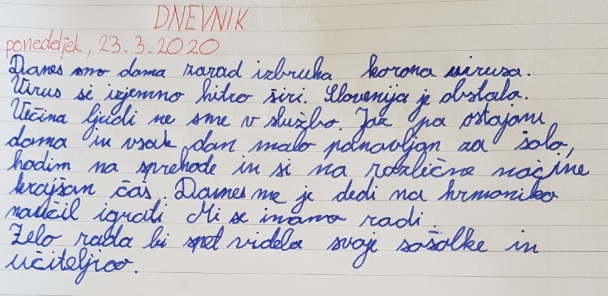 DNEVNIK
ponedeljek, 23.3.2020
Danes smo doma zarad izbruha korona virusa.
Virus se izjemno hitro širi. Slovenija je obstala.
Večina ljudi ne sme v službo. Jaz pa ostajam
doma in vsak dan malo ponavljan za šolo,
hodim na sprehode in si na različne načine
krajšan čas. Danes me je dedi na hrmoniko
naučil igrati. Mi se imamo radi.
Zelo rada bi spet videla svoje sošolke in
učiteljico.